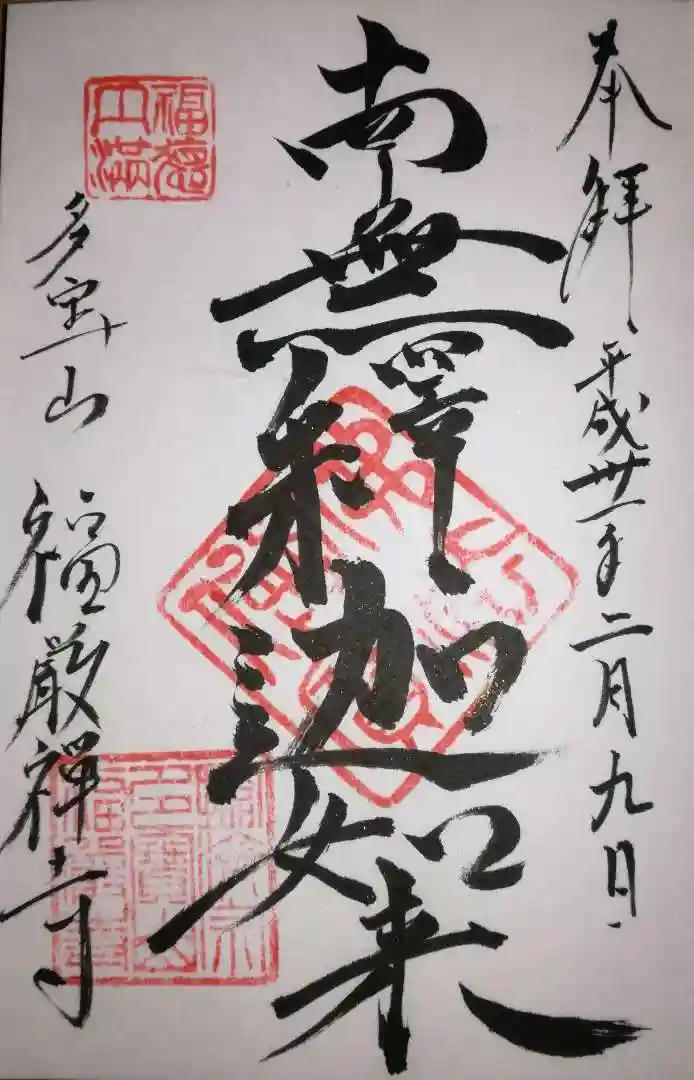 奉拝
平成卅一年二月九日
南無釋迦如来
福徳
円満
多宝山
福厳禅寺